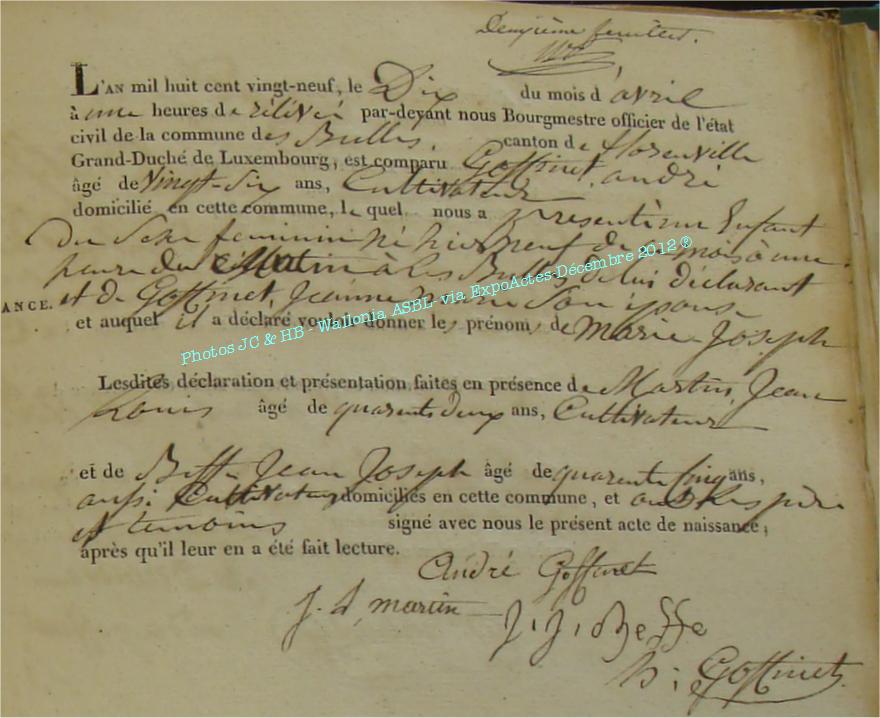 Deuxième feuillet.
L'AN mil huit cent vingt-neuf, le Dix du mois d'avril
à une heures de rélévée par-devant nous Bourgmestre officier de l'état
civil de la commune des Bulles, canton de florenville
Grand-Duché de Luxembourg, est comparu Goffinet, andré
âgé de vingt-six ans, Cultivateur
domicilié en cette commune, le quel nous a présenté un Enfant
Du Sexe feminin né hier neuf de ce mois à une
heure du Matin à les Bulles de lui déclarant
ANCE. et de Goffinet, Jeanne son Epouse
et auquel il a déclaré vouloir donner les prénoms de Marie-Joseph
Photos JC & HB - Wallonia ASBL- via ExpoActes-Décembre 2012 ®
Lesdites déclaration et présentation faites en présence de Martin, Jean
Louis âgé de quarente deux ans, Cultivateur
et de Beffe Jean Joseph âgé de quarente Cinq ans,
aussi Cultivateur domiciliés en cette commune, et ont les père
et temoins signé avec nous le présent acte de naissance,
après qu'il leur en a été fait lecture.
André Goffinet
J. L. martin
J. J. Beffe
Goffinet